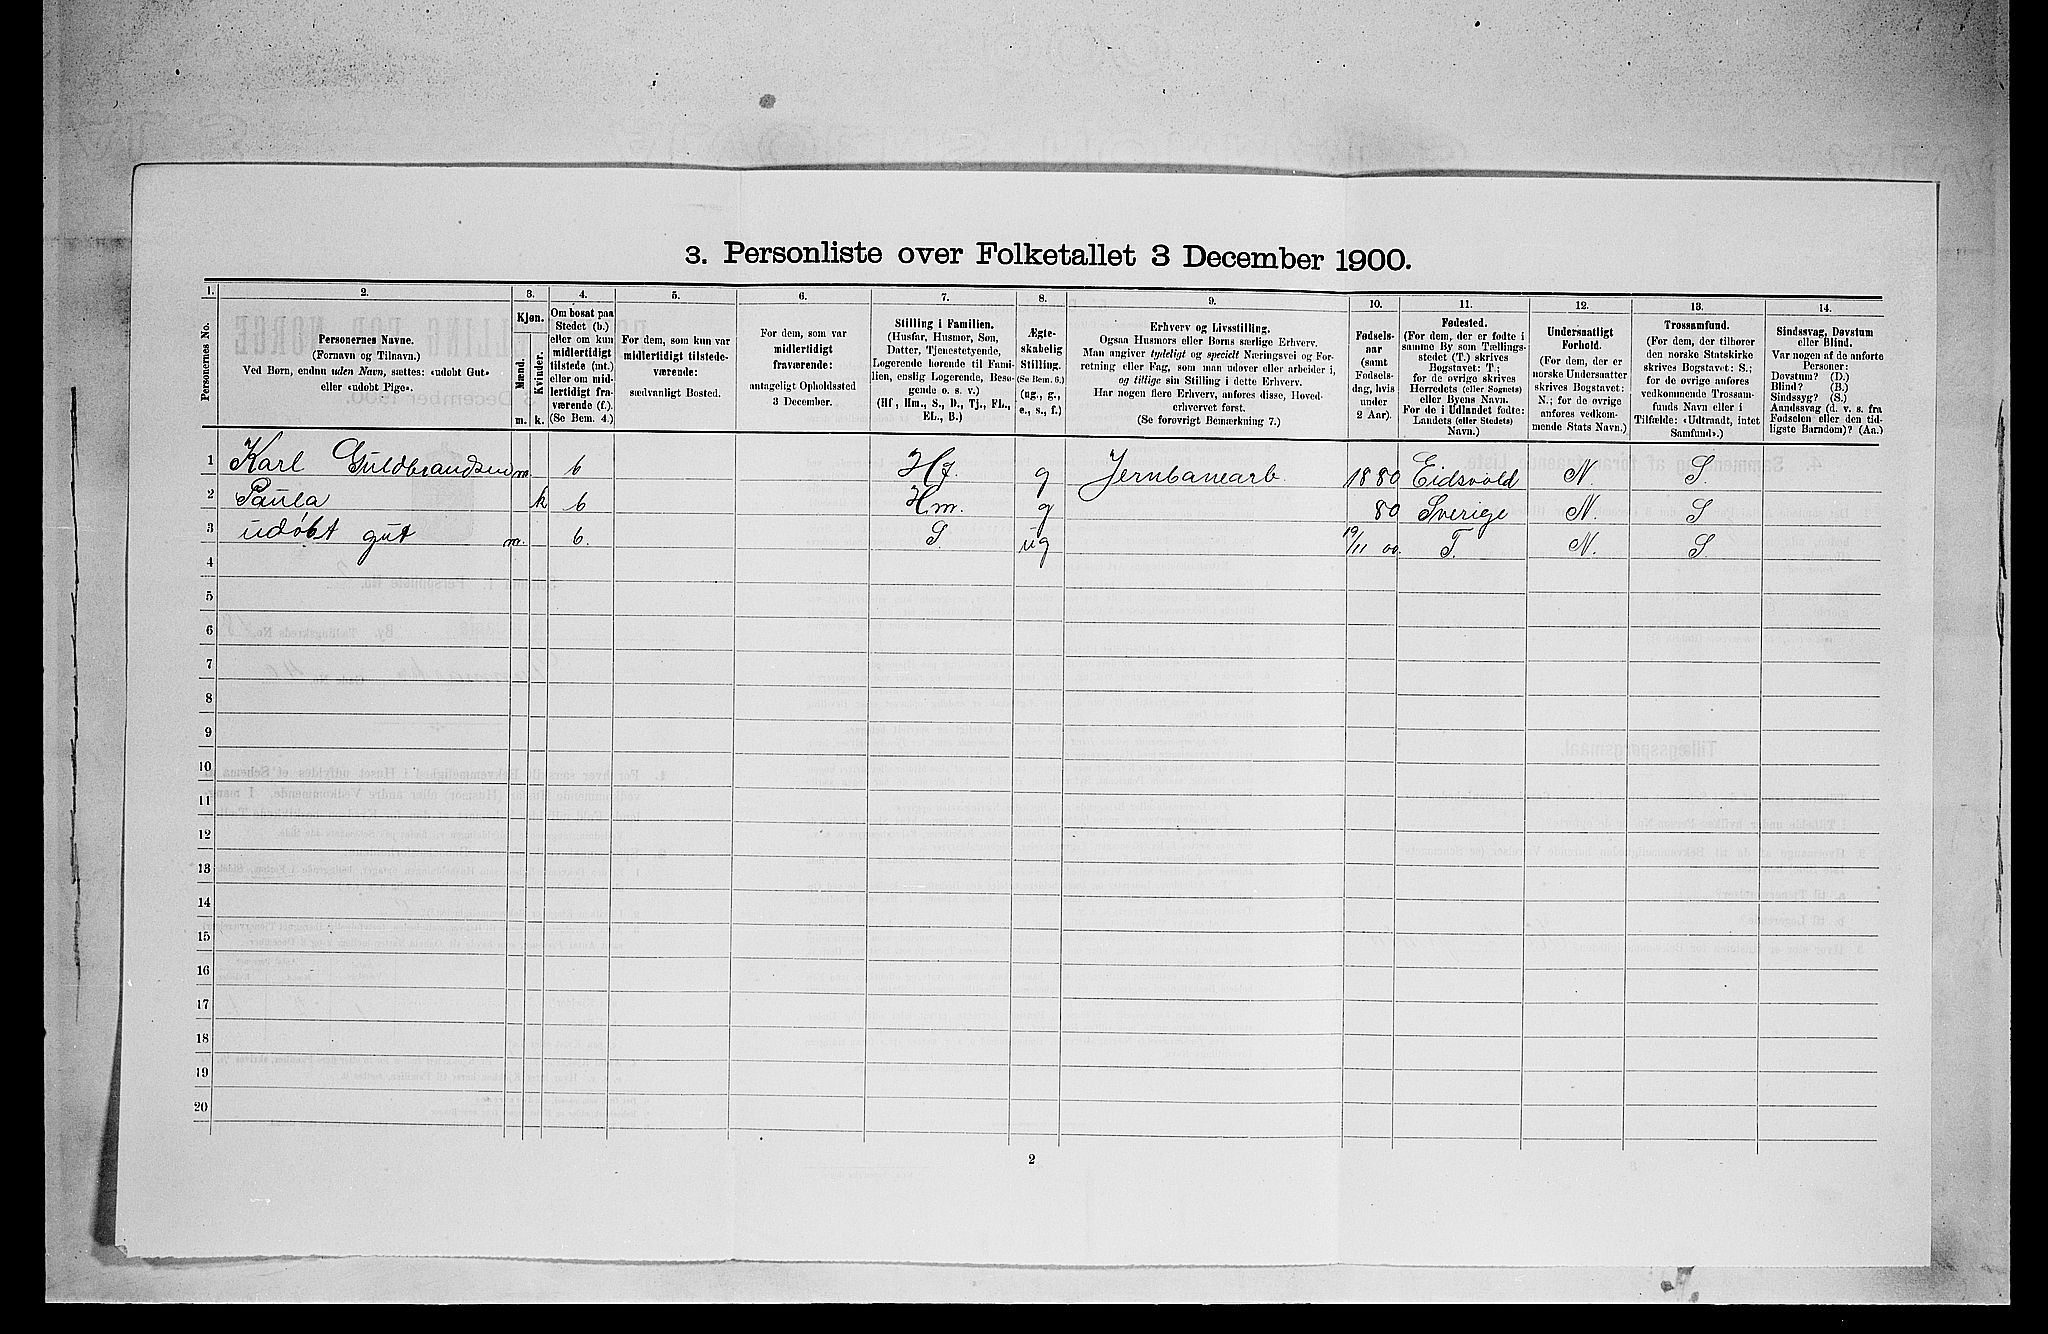 3. Personliste over Folketallet 3 December 1900.
1. 2. 3. 4. 5. 6. 7. 8. 9. 10. 11. 12. 13. 14.
Personernes No.
Personernes Navne.
(Fornavn og Tilnavn.)
Ved Børn, endnu uden Navn, sættes: «udøbt Gut»
eller «udøbt Pige».
Kjøn.
Mænd.
Kvinder.
m. k.
Om bosat paa
Stedet (b.)
eller om kun
midlertidigt
tilstede (mt.)
eller om mid-
lertidigt fra-
værende (f.)
(Se Bem. 4.)
For dem, som kun var
midlertidigt tilstede-
værende:
sædvanligt Bosted.
For dem, som var
midlertidigt
fraværende:
antageligt Opholdssted
3 December.
Stilling i Familien.
(Husfar, Husmor, Søn,
Datter, Tjenestetyende,
Logerende hørende til Fami-
lien, enslig Logerende, Besø-
gende o. s. v.)
(Hf, Hm., S., D., Tj., FL.,
EL., B.)
Ægte-
skabelig
Stilling.
(Se Bem. 6.)
(ug., g.,
e., s., f.)
Erhverv og Livsstilling.
Ogsaa Husmors eller Børns særlige Erhverv.
Man angiver tydeligt og specielt Næringsvei og For-
retning eller Fag, som man udøver eller arbeider i,
og tillige sin Stilling i dette Erhverv.
Har nogen flere Erhverv, anføres disse, Hoved-
erhvervet først.
(Se forøvrigt Bemærkning 7.)
Fødsels-
aar
(samt
Fødsels-
dag, hvis
under
2 Aar).
Fødested.
(For dem, der er fødte i
samme By som Tællings-
stedet (T.) skrives
Bogstavet: T.;
for de øvrige skrives
Herredets (eller Sognets)
eller Byens Navn.
For de i Udlandet fødte:
Landets (eller Stedets)
Navn.)
Undersaatligt
Forhold.
(For dem, der er
norske Undersaatter
skrives Bogstavet:
N.; for de øvrige
anføres vedkom-
mende Stats Navn.)
Trossamfund.
(For dem, der tilhører
den norske Statskirke
skrives Bogstavet: S.;
for de øvrige anføres
vedkommende Trossam-
funds Navn eller i
Tilfælde: «Udtraadt, intet
Samfund».)
Sindssvag, Døvstum
eller Blind.
Var nogen af de anførte
Personer:
Døvstum? (D.)
Blind? (B.)
Sindssyg? (S.)
Aandssvag (d. v. s. fra
Fødselen eller den tid-
ligste Barndom)? (Aa.)
1 Karl Guldbrandsen m. b Hf g Jernbanearb. 1880 Eidsvold N. S.
2 Paula k b Hm. g 80 Sverige N. S
3 udøbt gut m. b. S. ug 19/11 00. T. N. S
4
5
6
7
8
9
10
11
12
13
14
15
16
17
18
19
20
2